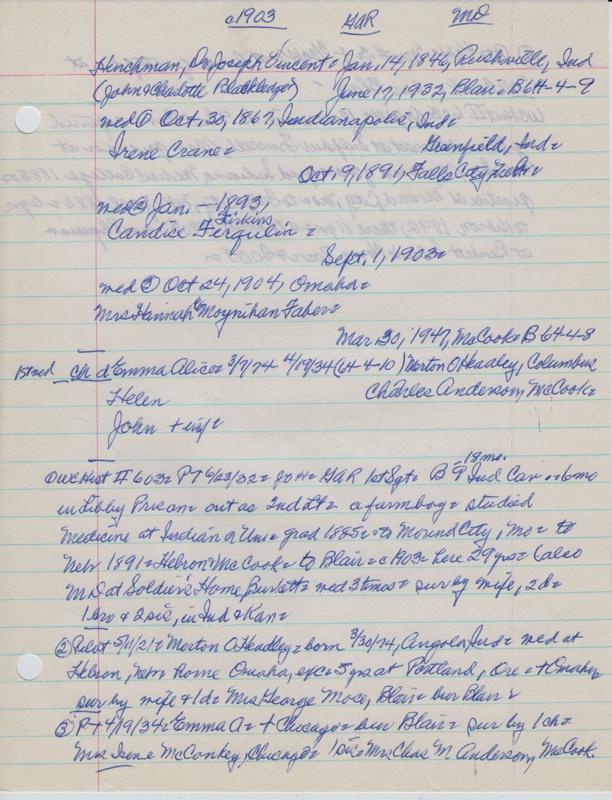 c1903 GAR MD
Henchman, Dr Joseph Vincent = Jan. 14, 1846, Rushville, Ind
(John & Charlotte Blackledge) June 17, 1932, Blair = B 64-4-9
med ① Oct. 30, 1867, Indianapolis, Ind =
Irene Crane = Greenfield, Ind =
Oct. 9, 1891, Falls City, Nebr =
med ② Jan. — 1893,
Firkins
Candise Fergulin =
Sept. 1, 1903 =
med ③ Oct 24, 1904, Omaha =
Mrs Hannah Moynihan Faber =
Mar 30, 1947, McCook = B 64-4-8
1st med Ch d Emma Alice = 3/7/74 - 4/19/34 (64-4-10) Merton O Headley, Columbus
Helen Charles Anderson, McCook =
John + inf =
18 mo.
OWC Hist II 603 = PT 6/23/32 = GAR 1st Sgt = B 9 Ind Cav = 6 mo
in Libby Prison = out as 2nd Lt = a farm boy = studied
Medicine at Indian a Uni = grad 1885 = to Mound City, Mo = to
Nebr 1891 = Hebron & McCook = to Blair = c1903 = here 29 yrs = (also
MD at Soldier's Home, Burkett = med 3 times = sur by wife, 2d =
1 bro & 2 sis, in Ind & Kan =
② Pilot 5/11/21 = Merton O Headley = born 3/30/74, Angola, Ind = med at
Hebron, Nebr = home Omaha, exc = 5 yrs at Portland, Ore = + Omaha
sur by wife & 1d = Mrs George Moce, Blair = bur Blair =
③ P + 4/19/34 = Emma A = + Chicago = bur Blair = sur by 1 ch =
Mrs Irene McConkey, Chicago = 1 sis = Mrs Chas M Anderson, McCook.